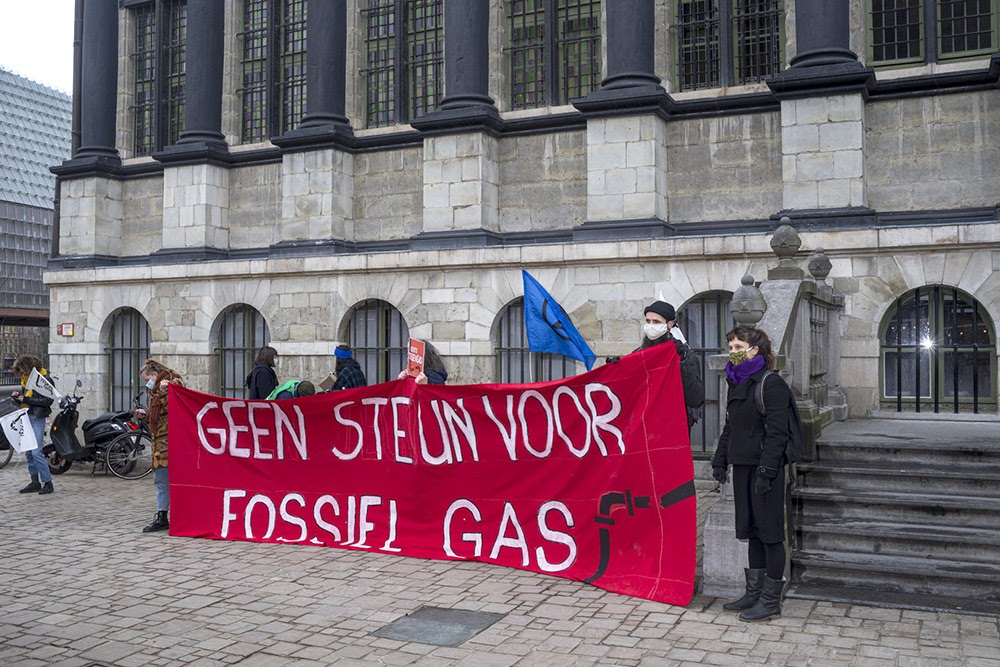 GEEN STEUN VOOR
FOSSIEL GAS